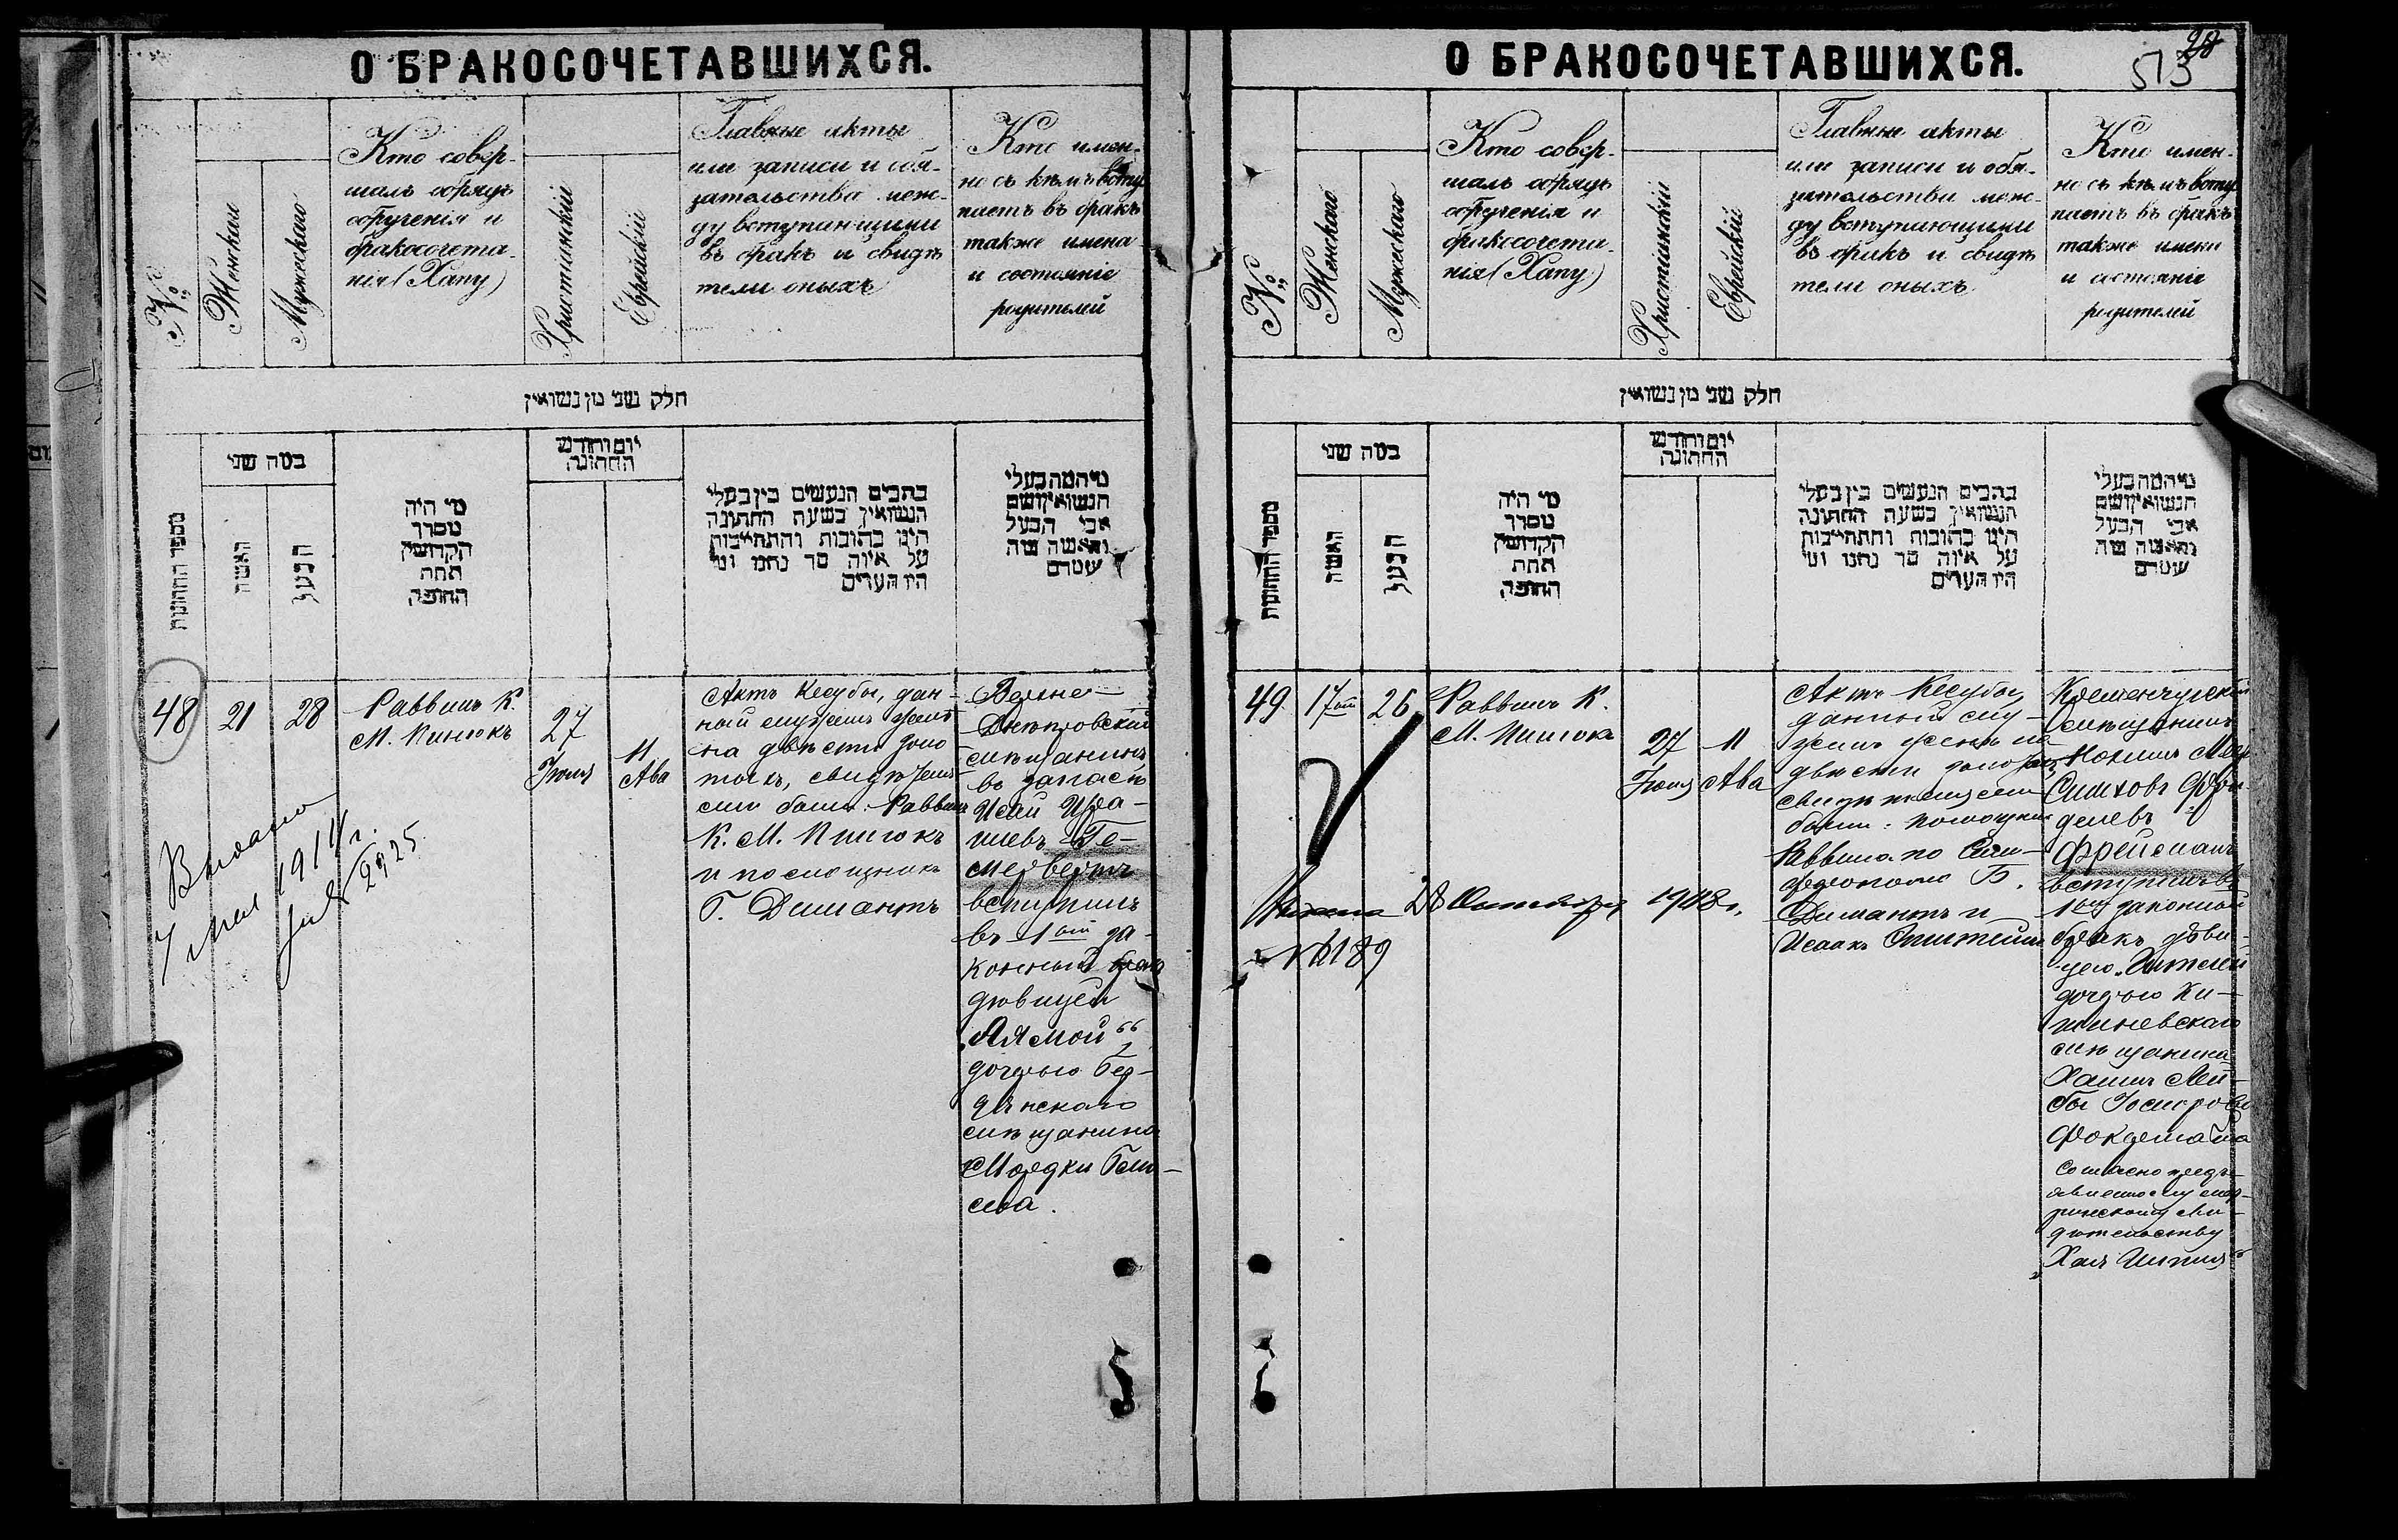 О БРАКОСОЧЕТАВШИХСЯ.
№
Женскаго
Мужескаго
Кто совер-
шалъ обрядъ
обрученія и
бракосочета-
нія (Хапу)
Христіанскій
Еврейскій
Главные акты
или записи и обя-
зательства меж-
ду вступающими
въ бракъ и свидѣ
тели оныхъ
Кто имен-
но съ кѣмъ всту
паетъ въ бракъ
также имена
и состояніе
родителей
חלק שני מן נשואין
מספר החתונות
כמה שני
האשה
הבעל
מי היה
מסדר
הקדושין
תחת
החופה
יום וחודש
החתונה
כתבים הנעשים בין בעלי
הנשואין בשעת החתונה
היינו כתובות והתחייבות
על איזה סך נתנו ומי
היו העדים
מי המה בעלי
הנשואין ושם
אבי הבעל
והאשה ומה
שמם
48
21
28
Раввинъ К.
М. Пинюкъ
27
Іюля
11
Ава
Актъ Кесубы, дан-
ный мужемъ женѣ
на двѣсти золо
тыхъ, свидѣтеля-
ми были: Раввинъ
К. М. Пинюкъ
и помощникъ
Б. Димантъ
Днѣпровскій
мѣщанинъ
въ запасѣ
Исай Изра-
илевъ Ге-
мервертъ
вступилъ
въ 1ый за-
конный бракъ
дѣвицей
„Алмой“
дочерью Бер-
дянскаго
мѣщанина
Мордки
7 мая 1914 г.
2925
О БРАКОСОЧЕТАВШИХСЯ.
28
513
№
Женскаго
Мужескаго
Кто совер-
шалъ обрядъ
обрученія и
бракосочета-
нія (Хапу)
Христіанскій
Еврейскій
Главные акты
или записи и обя-
зательства меж-
ду вступающими
въ бракъ и свидѣ
тели оныхъ
Кто имен-
но съ кѣмъ всту
паетъ въ бракъ
также имена
и состояніе
родителей
חלק שני מן נשואין
מספר החתונות
כמה שני
האשה
הבעל
מי היה
מסדר
הקדושין
תחת
החופה
יום וחודש
החתונה
כתבים הנעשים בין בעלי
הנשואין בשעת החתונה
היינו כתובות והתחייבות
על איזה סך נתנו ומי
היו העדים
מי המה בעלי
הנשואין ושם
אבי הבעל
והאשה ומה
שמם
49
17
26
Раввинъ К.
М. Пинюкъ
27
Іюля
11
Ава
Актъ Кесубы,
данный му-
жемъ женѣ на
двѣсти золотыхъ,
свидѣтелями
были: помощникъ
Раввина по Сим-
ферополю Б.
Димантъ и
Исаакъ
Кременчугскій
мѣщанинъ
Фрейманъ
вступилъ въ
1ый законный
бракъ дѣви-
цею
дочерью Ки-
шиневскаго
мѣщанина
Хаима Лей-
бы
Согласно предъ-
явленному мет-
рическому сви-
дѣтельству
28 Октября 1908 г.
№ 189